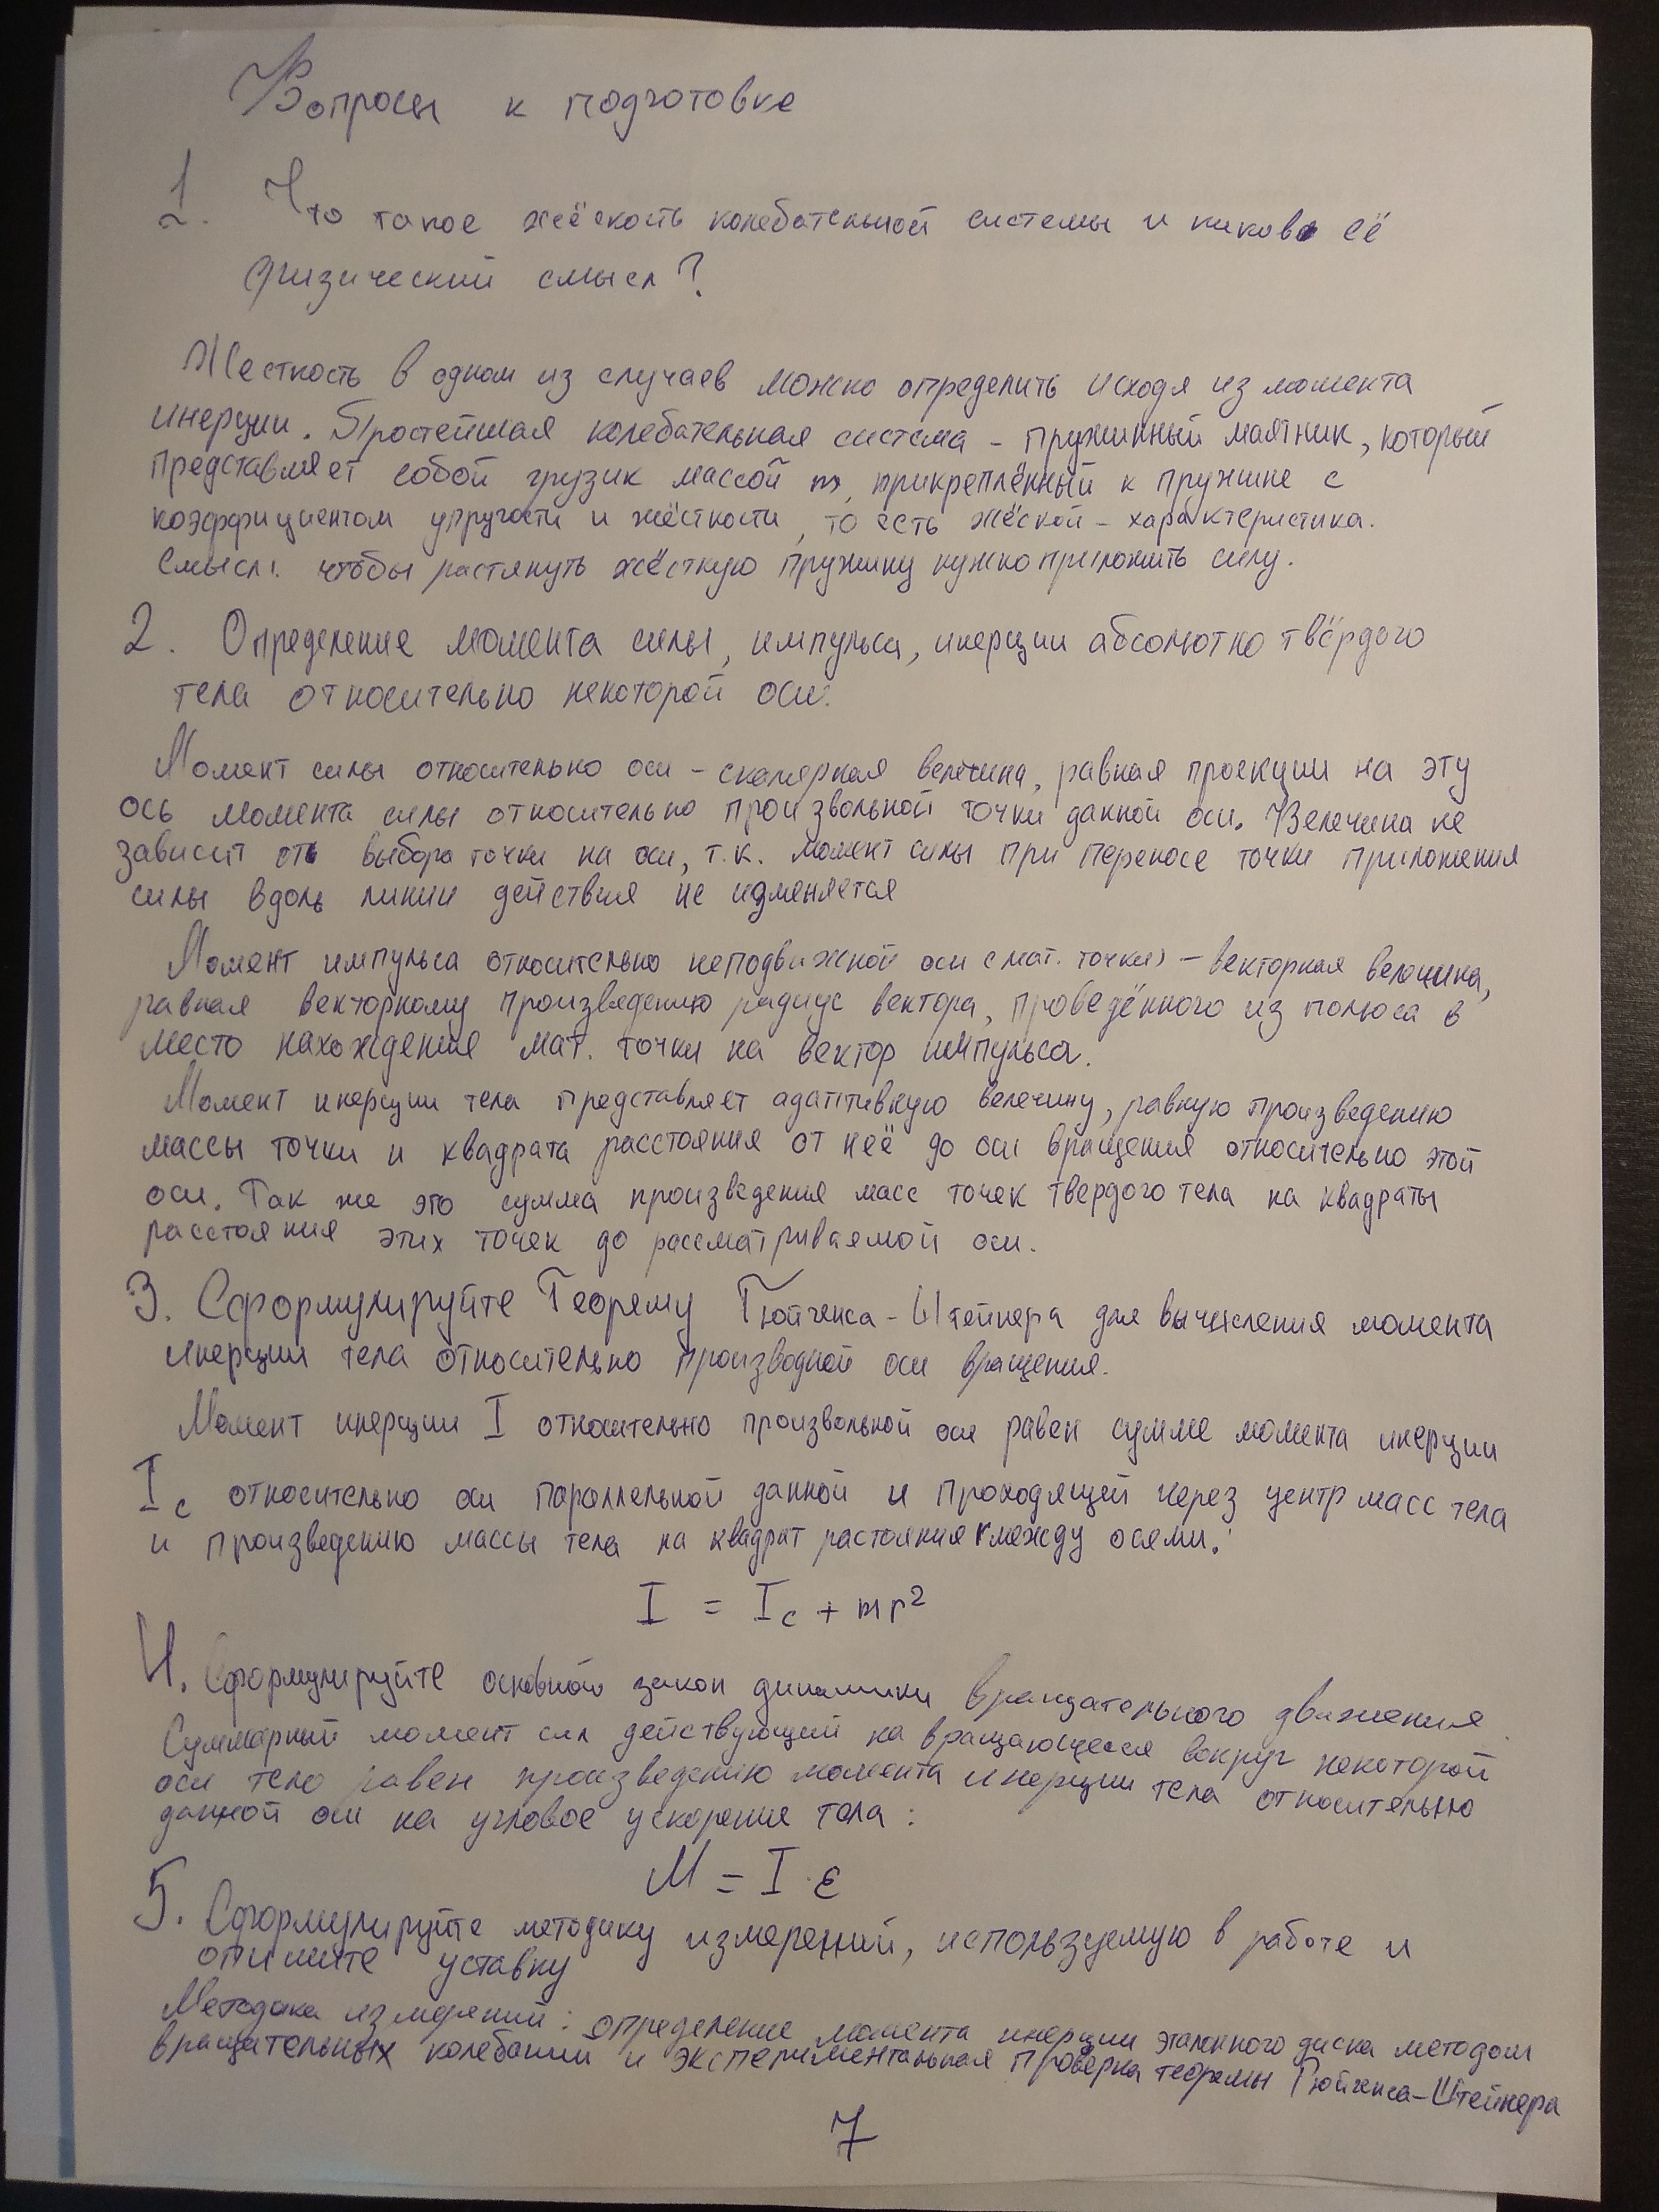 Вопросы к подготовке
1. Что такое жёскость колебательной системы и каков её
физический смысл?
Жесткость в одном из случаев можно определить исходя из момента
инерции. Простейшая колебательная система – пружинный маятник, который
представляет собой грузик массой m, прикреплённый к пружине с
коэффициентом упругости и жёсткости, то есть жёской – характеристика.
Смысл: чтобы растянуть жёсткую пружину нужно приложить силу.
2. Определение момента силы, импульса, инерции абсолютно твёрдого
тела относительно некоторой оси.
Момент силы относительно оси – скалярная величина, равная проекции на эту
ось момента силы относительно произвольной точки данной оси. Велечина не
зависит от выбора точки на оси, т.к. момент силы при переносе точки приложения
силы вдоль линии действия не изменяется
Момент импульса относительно неподвижной оси (мат. точки) – векторная величина,
равная векторному произведению радиус вектора, проведённого из полюса в
место нахождения мат. точки на вектор импульса.
Момент инерции тела представляет адаптивную велечину, равную произведению
массы точки и квадрата расстояния от неё до оси вращения относительно этой
оси. Так же это сумма произведения масс точек твердого тела на квадраты
расстояния этих точек до рассматриваемой оси.
3. Сформулируйте Теорему Гюйгенса-Штейнера для вычисления момента
инерции тела относительно производной оси вращения.
Момент инерции I относительно произвольной оси равен сумме момента инерции
I c относительно оси параллельной данной и проходящей через центр масс тела
и произведению массы тела на квадрат растояния r между осями:
I = I c + mr²
4. Сформулируйте основной закон динамики вращательного движения
Суммарный момент сил действующий на вращающееся вокруг некоторой
оси тело равен произведению момента инерции тела относительно
данной оси на угловое ускорение тела:
M = I · ε
5. Сформулируйте методику измерений, используемую в работе и
опишите уставку
Методика измерений: определение момента инерции эталонного диска методом
вращательных колебании и экспериментальная проверка теоремы Гюйгенса-Штейнера
7